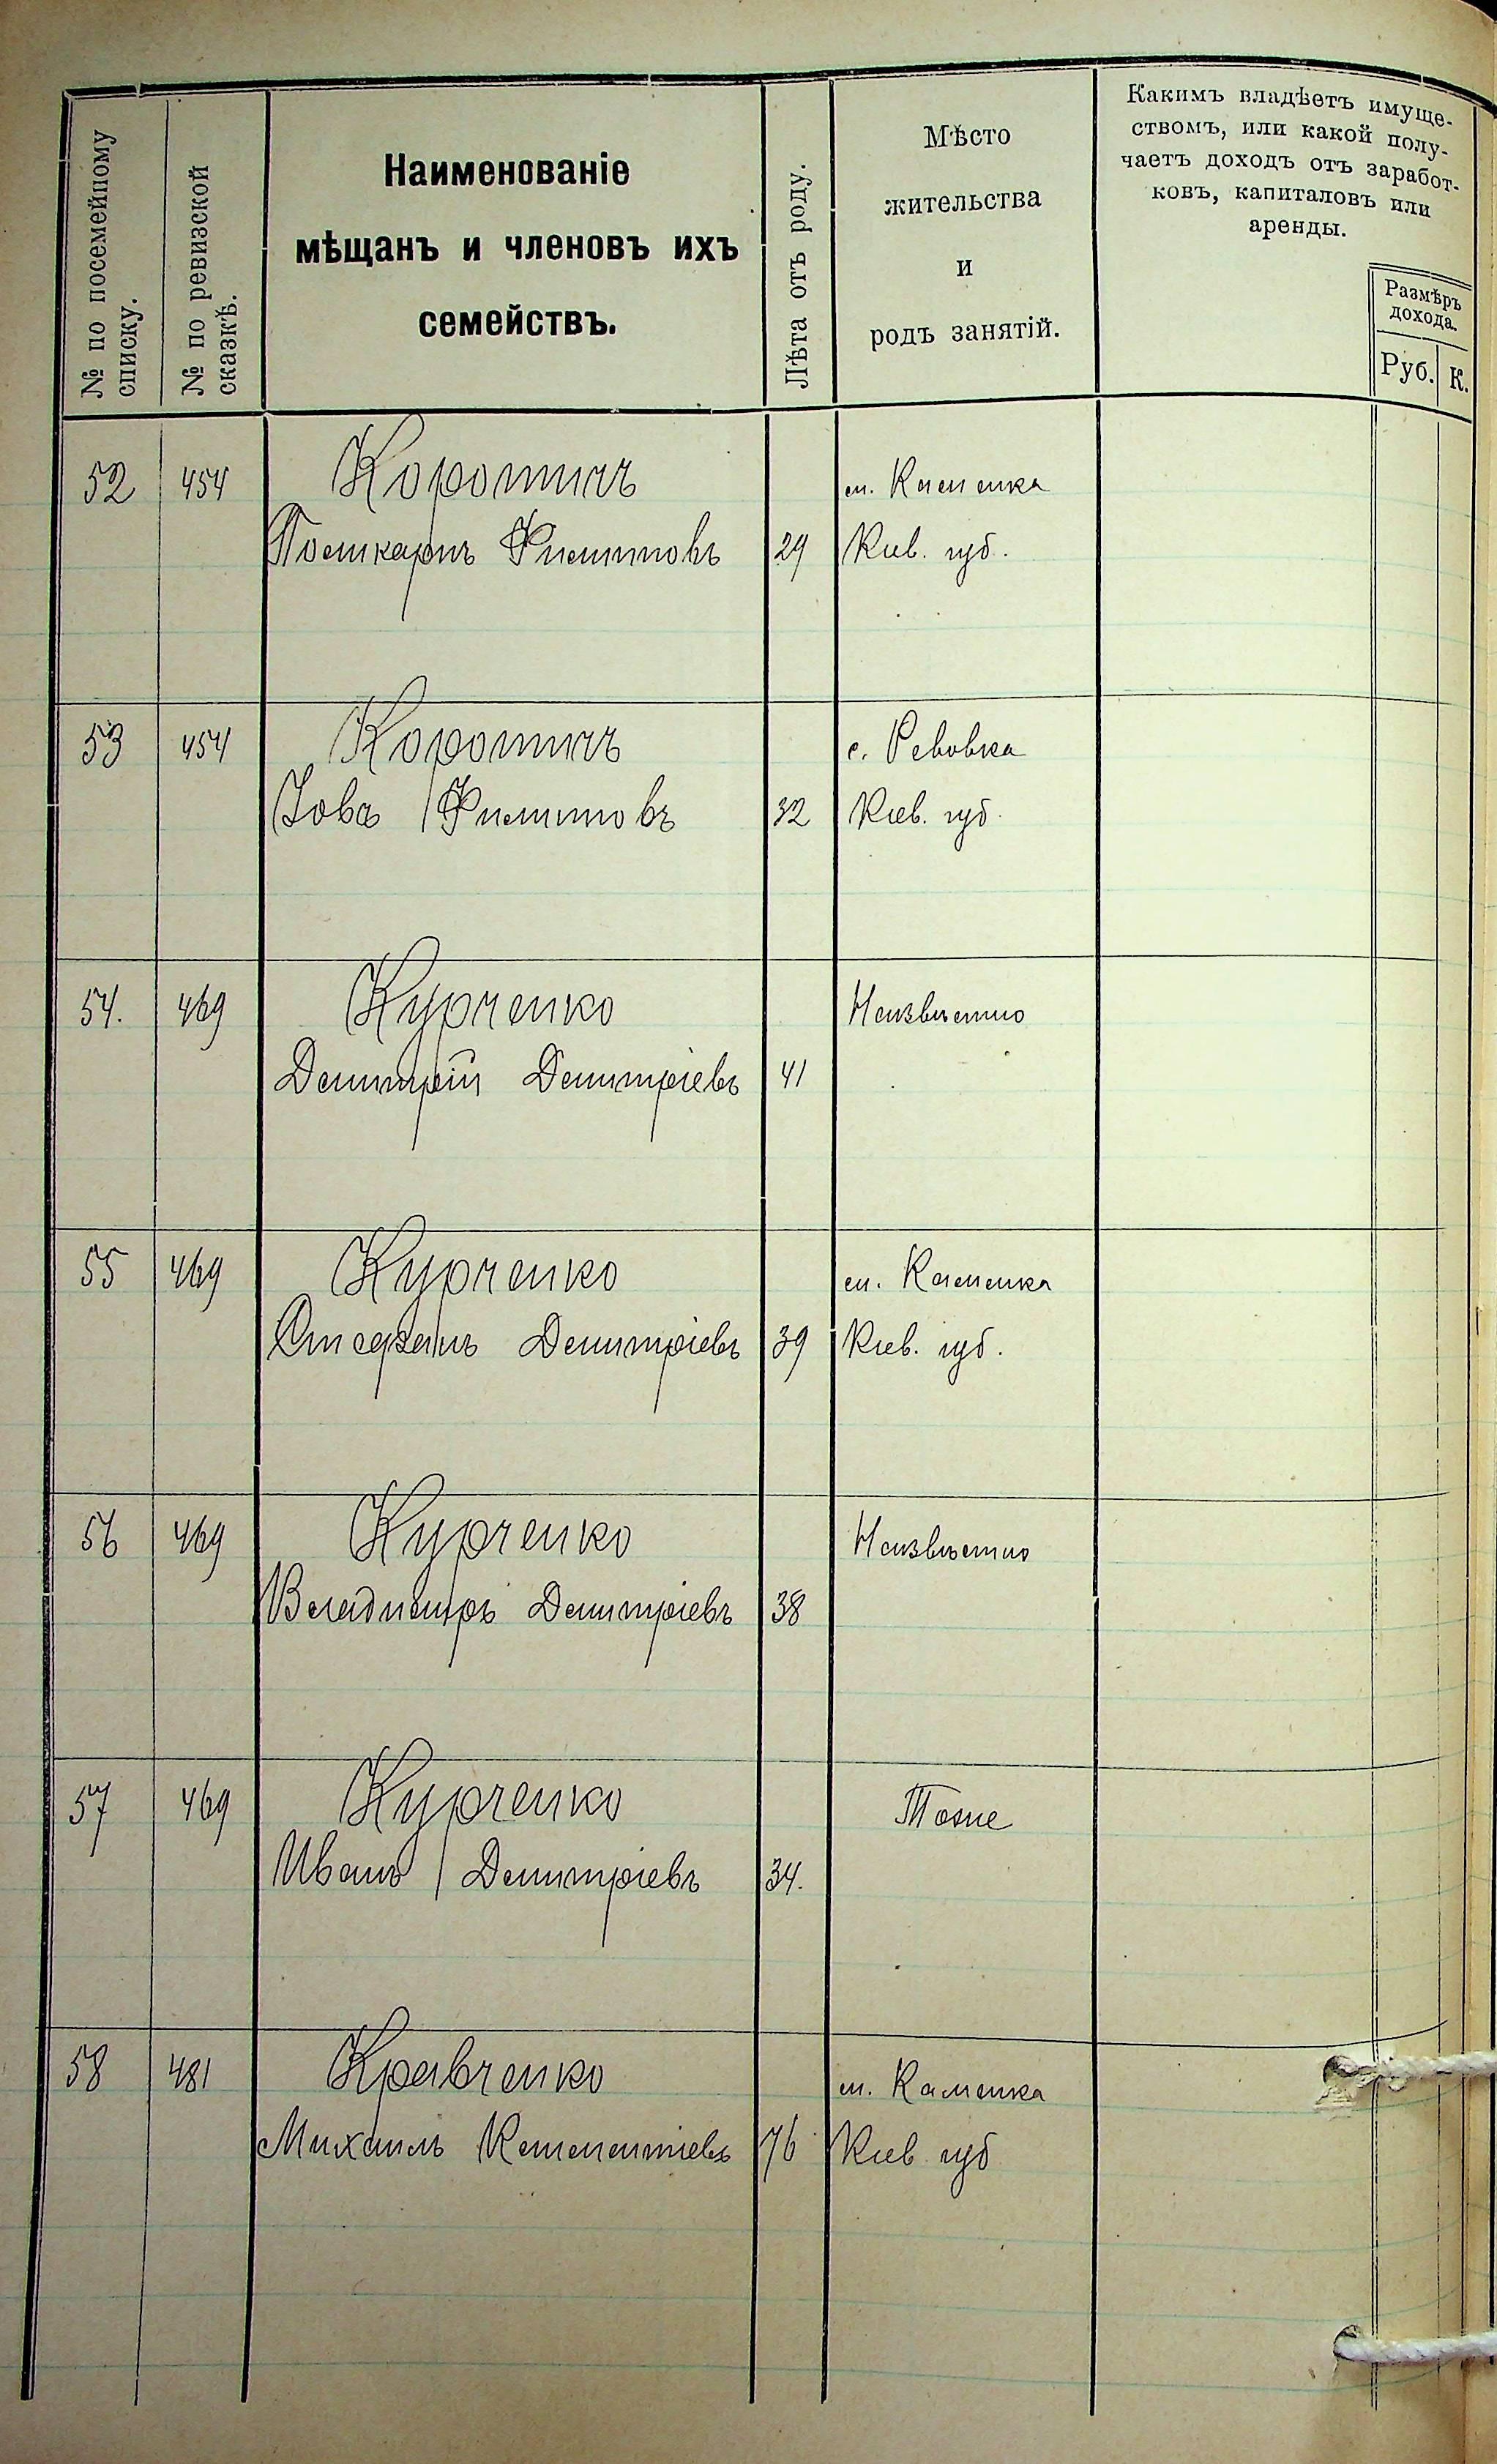 № по посемейному
списку.
№ по ревизской
сказкѣ.
Наименованіе
мѣщанъ и членовъ ихъ
семействъ.
Лѣта отъ роду.
Мѣсто
жительства
и
родъ занятій.
Какимъ владѣетъ имуще-
ствомъ, или какой полу-
чаетъ доходъ отъ заработ-
ковъ, капиталовъ или
аренды.
Размѣръ
дохода.
Руб. К.
52 454 Коротичъ м. Каменка
Поликарпъ Филиповъ 29 Кіев. губ.
53 454 Коротичъ с. Ревовка
Іовъ Филиповъ 32 Кіев. губ.
54. 469 Курченко Неизвѣстно
Димитрій Димитріевъ 41
55 469 Курченко м. Каменка
Стефанъ Димитріевъ 39 Кіев. губ.
56 469 Курченко Неизвѣстно
Владиміръ Димитріевъ 38
57 469 Курченко Тоже
Иванъ Димитріевъ 34.
58 481 Кравченко м. Каменка
Михаилъ Климентіевъ 76 Кіев губ